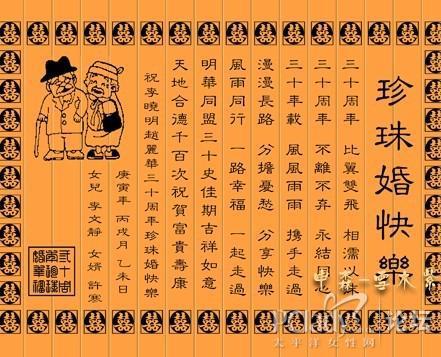 珍珠婚快樂
三十周年 比翼雙飛 相濡以沫
三十周年 不離不弃 永結
三十年載 風風雨雨 携手走過
漫漫長路 分擔憂愁 分享快樂
風雨同行 一路幸福 一起走過
明華同盟三十史佳期吉祥如意
天地合德千百次祝賀富貴壽康
祝李曉明趙麗華三十周年珍珠婚快樂
庚寅年 丙戌月 乙未日
女兒 李文靜 女婿 許寒
论坛
太平洋女性网